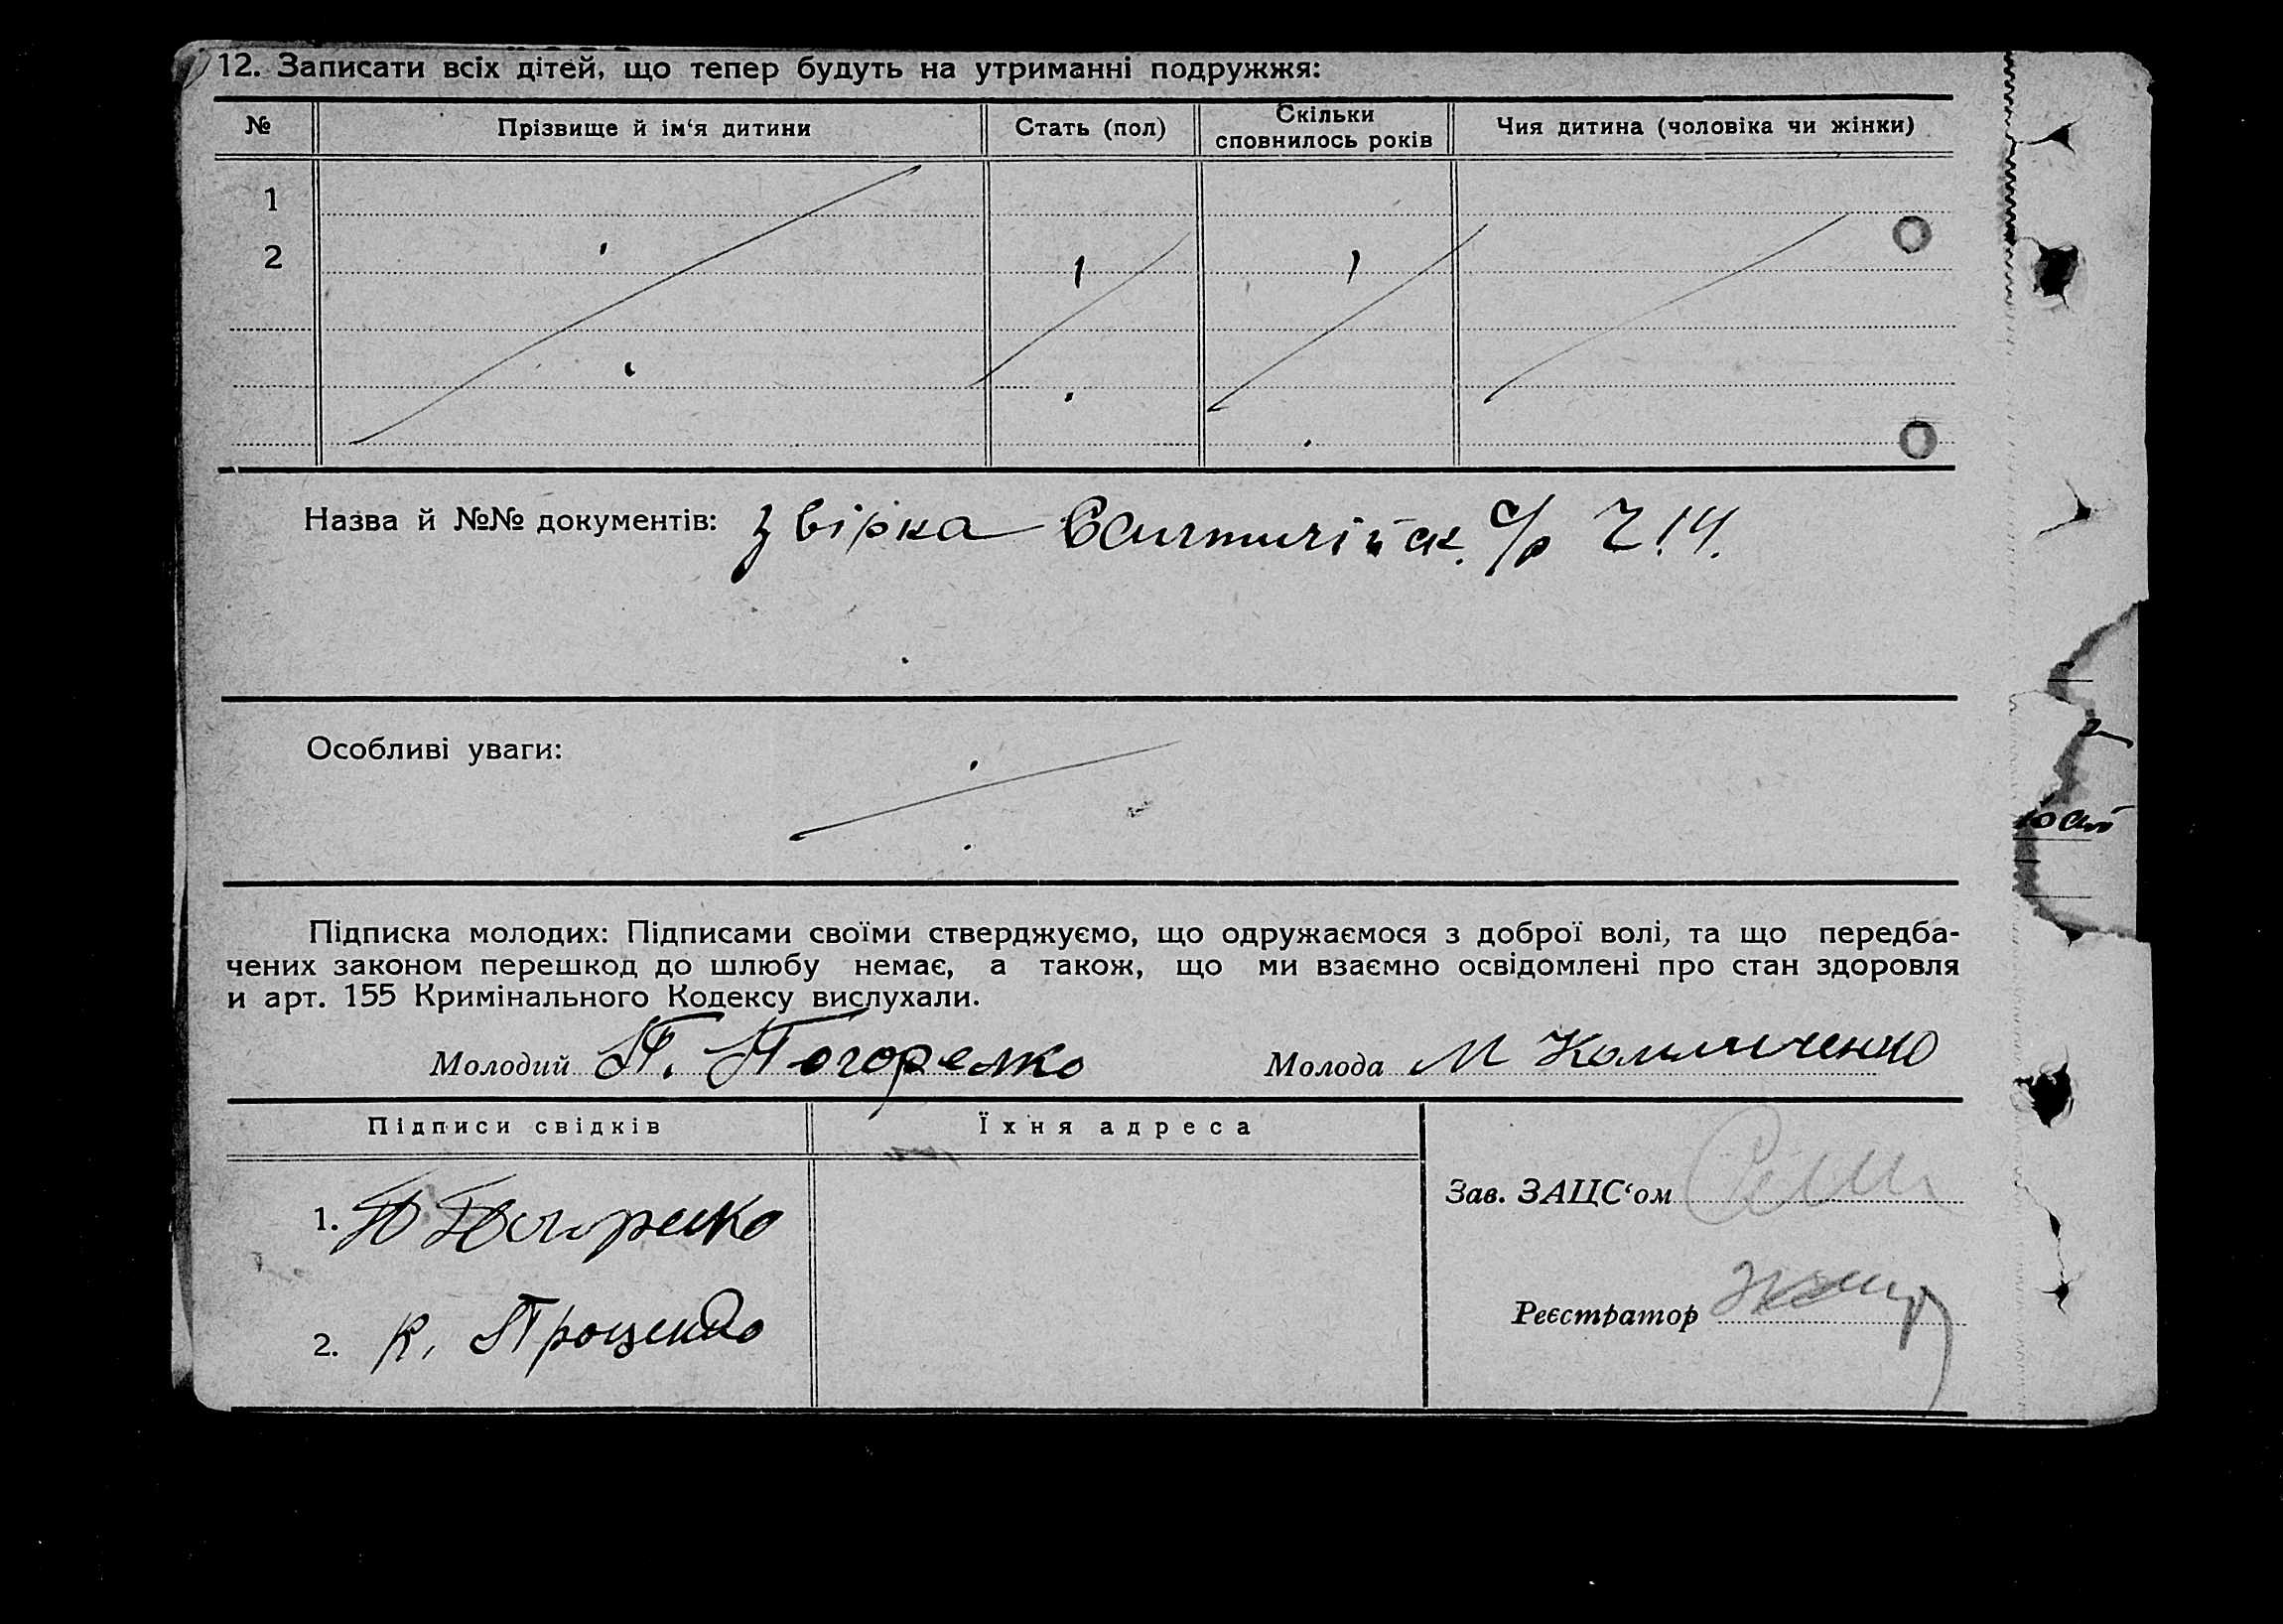 12. Записати всіх дітей, що тепер будуть на утриманні подружжя:
№ Прізвище й ім‘я дитини Стать (пол) Скільки сповнилось років Чия дитина (чоловіка чи жінки)
1
2
Назва й №№ документів: звірка с/р
Особливі уваги:
Підписка молодих: Підписами своїми стверджуємо, що одружаємося з доброї волі, та що передба-
чених законом перешкод до шлюбу немає, а також, що ми взаємно освідомлені про стан здоровля
и арт. 155 Кримінального Кодексу вислухали.
Молодий П. Погорелко Молода М
Підписи свідків Їхня адреса
Зав. ЗАЦС‘ом
1.
Реєстратор
2. К. Проценко